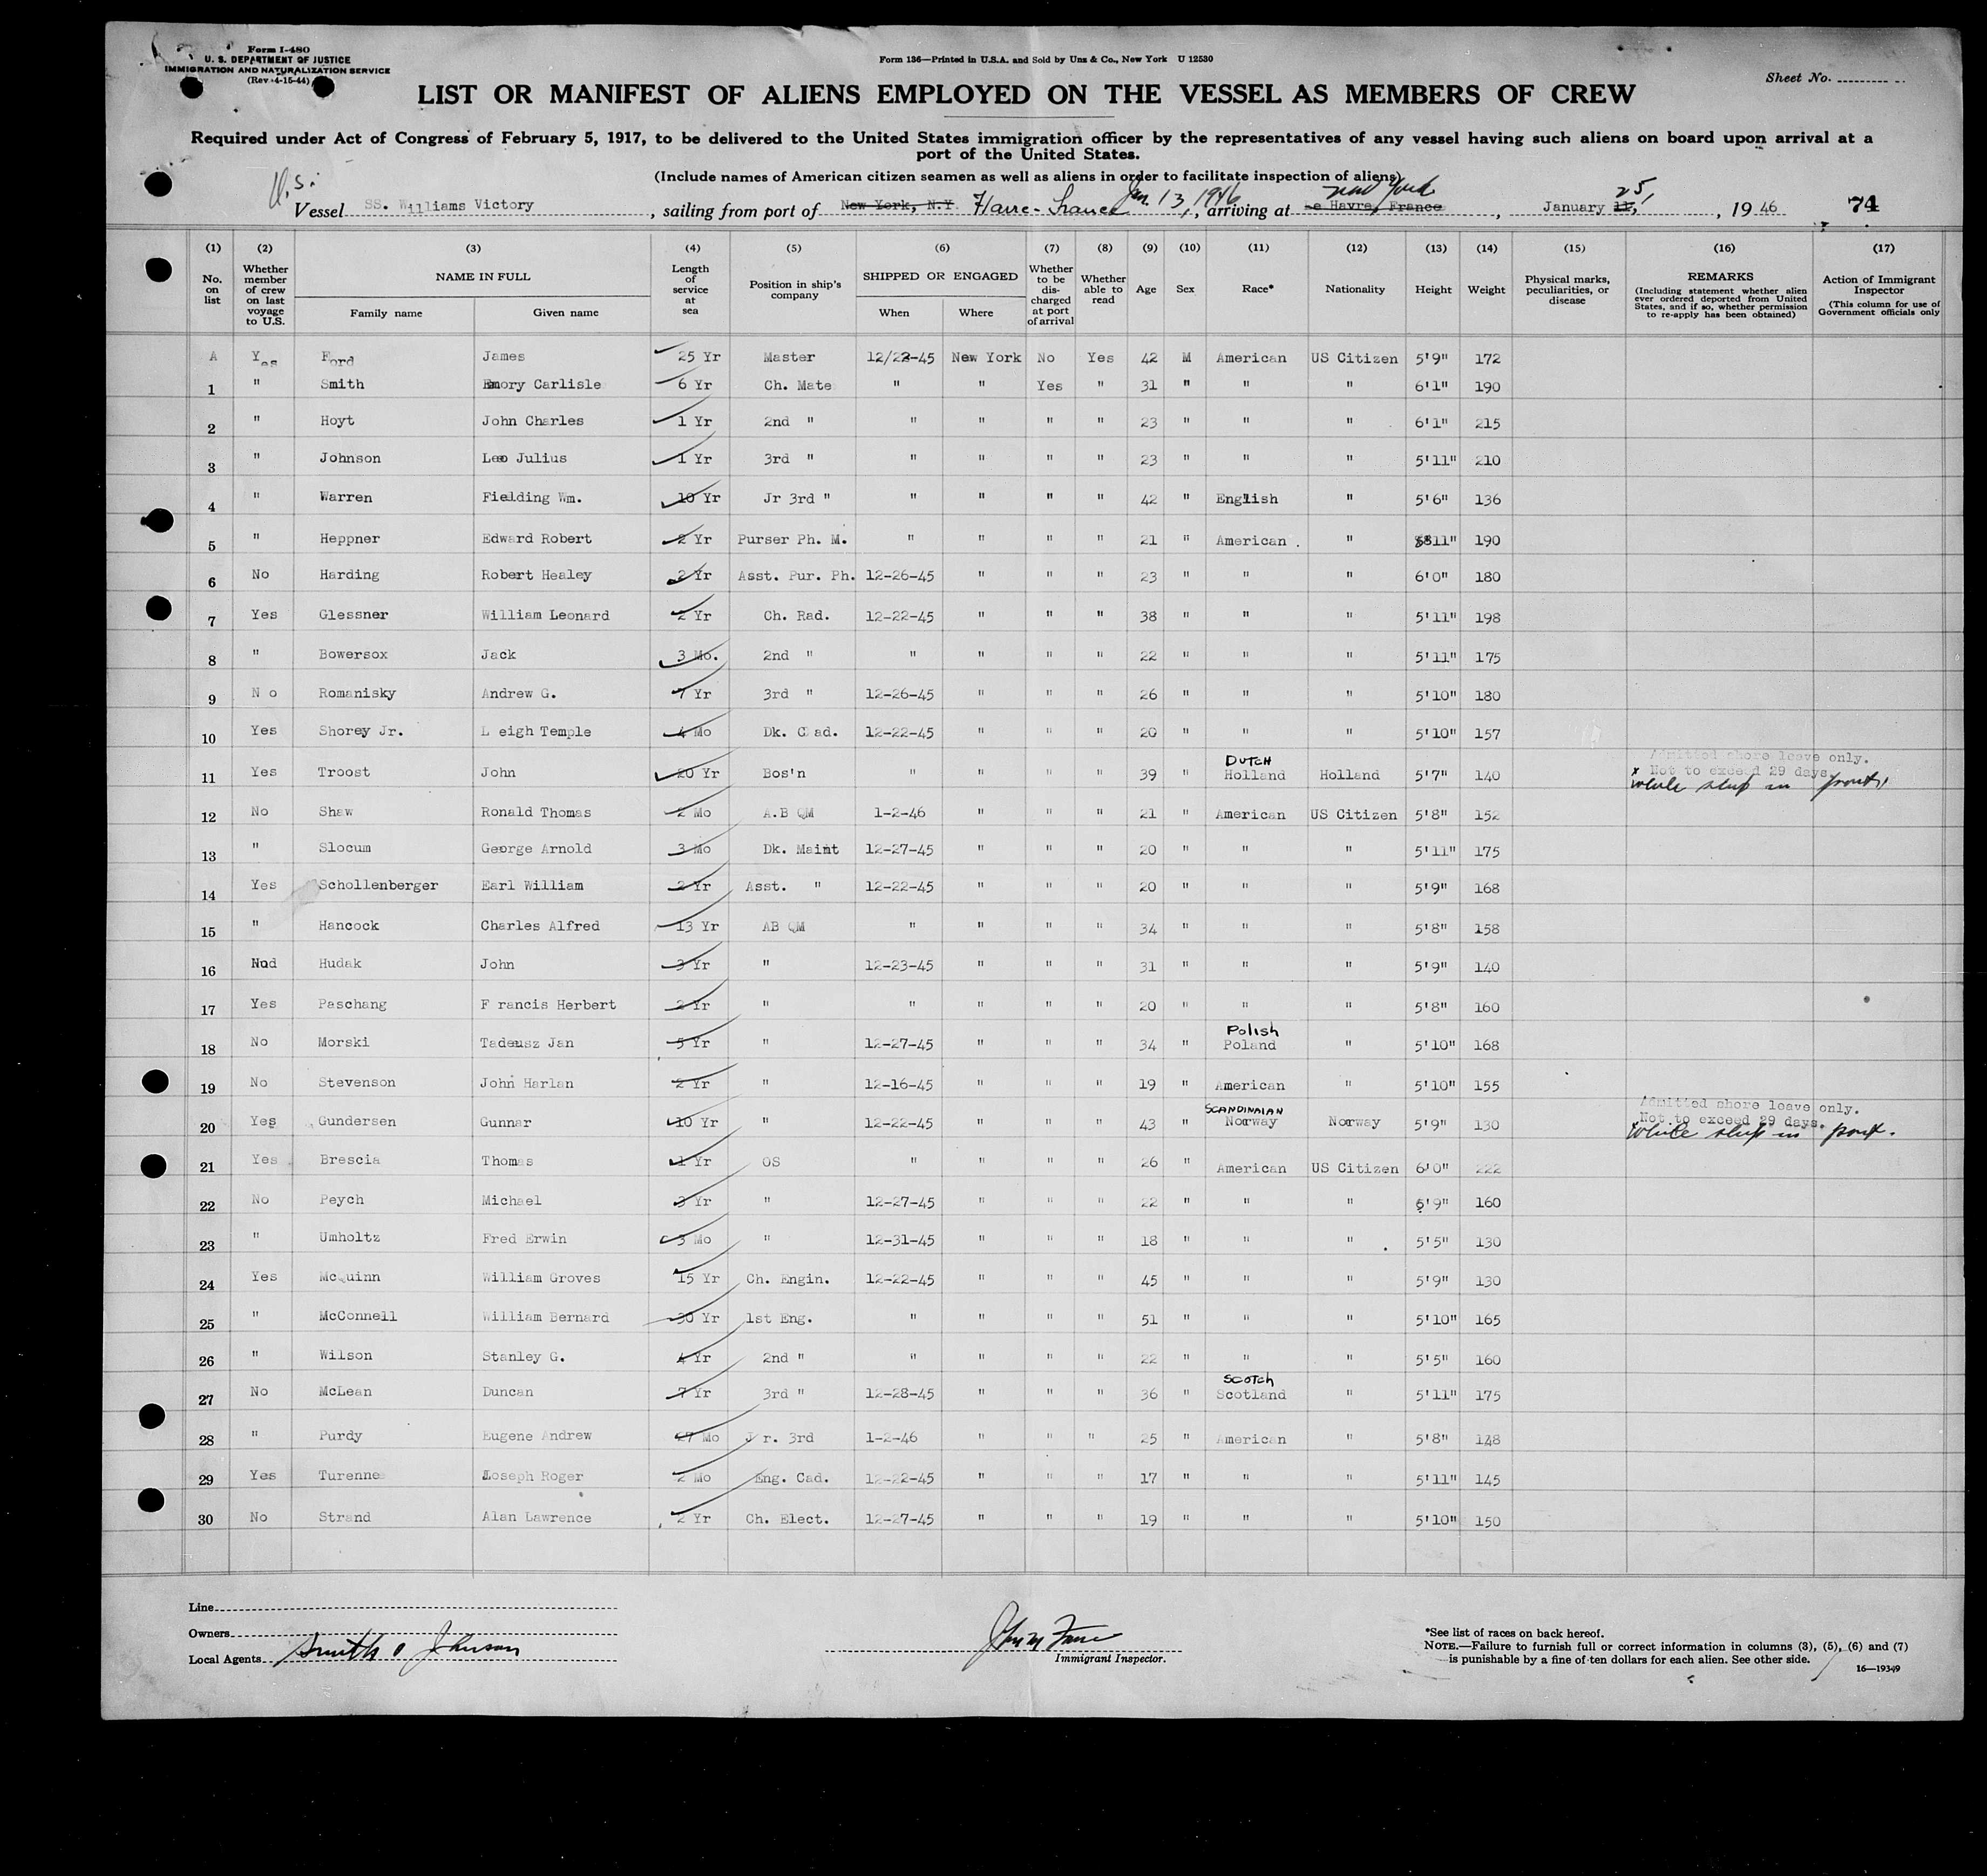 Form I-480
U. S. DEPARTMENT OF JUSTICE
IMMIGRATION AND NATURALIZATION SERVICE
(Rev. 4-15-44)
Form 136—Printed in U.S.A. and Sold by Unz & Co., New York U 12530
Sheet No.
LIST OR MANIFEST OF ALIENS EMPLOYED ON THE VESSEL AS MEMBERS OF CREW
Required under Act of Congress of February 5, 1917, to be delivered to the United States immigration officer by the representatives of any vessel having such aliens on board upon arrival at a
port of the United States.
(Include names of American citizen seamen as well as aliens in order to facilitate inspection of aliens)
U.S. Vessel SS. Williams Victory, sailing from port of New York, N.Y. Havre - France Jan. 13, 1946, arriving at Le Havre, France New York, January 11, 25, 1946 74
(1) (2) (3) (4) (5) (6) (7) (8) (9) (10) (11) (12) (13) (14) (15) (16) (17)
No. on list | Whether member of crew on last voyage to U.S. | NAME IN FULL Family name Given name | Length of service at sea | Position in ship's company | SHIPPED OR ENGAGED When Where | Whether to be discharged at port of arrival | Whether able to read | Age | Sex | Race* | Nationality | Height | Weight | Physical marks, peculiarities, or disease | REMARKS (Including statement whether alien ever ordered deported from United States, and if so, whether permission to re-apply has been obtained) | Action of Immigrant Inspector (This column for use of Government officials only
A Yes Ford James 25 Yr Master 12/22-45 New York No Yes 42 M American US Citizen 5'9" 172
1 " Smith Emory Carlisle 6 Yr Ch. Mate " " Yes " 31 " " " 6'1" 190
2 " Hoyt John Charles 1 Yr 2nd " " " " " 23 " " " 6'1" 215
3 " Johnson Leo Julius 1 Yr 3rd " " " " " 23 " " " 5'11" 210
4 " Warren Fielding Wm. 10 Yr Jr 3rd " " " " " 42 " English " 5'6" 136
5 " Heppner Edward Robert 2 Yr Purser Ph. M. " " " " 21 " American " 11" 190
6 No Harding Robert Healey 2 Yr Asst. Pur. Ph. 12-26-45 " " " 23 " " " 6'0" 180
7 Yes Glessner William Leonard 2 Yr Ch. Rad. 12-22-45 " " " 38 " " " 5'11" 198
8 " Bowersox Jack 3 Mo. 2nd " " " " " 22 " " " 5'11" 175
9 N o Romanisky Andrew G. 7 Yr 3rd " 12-26-45 " " " 26 " " " 5'10" 180
10 Yes Shorey Jr. L eigh Temple 4 Mo Dk. Cad. 12-22-45 " " " 20 " " " 5'10" 157
11 Yes Troost John 20 Yr Bos'n " " " " 39 " DUTCH Holland Holland 5'7" 140 Admitted shore leave only. Not to exceed 29 days. while ship in port,
12 No Shaw Ronald Thomas 2 Mo A.B QM 1-2-46 " " " 21 " American US Citizen 5'8" 152
13 " Slocum George Arnold 3 Mo Dk. Maint 12-27-45 " " " 20 " " " 5'11" 175
14 Yes Schollenberger Earl William 2 Yr Asst. " 12-22-45 " " " 20 " " " 5'9" 168
15 " Hancock Charles Alfred 13 Yr AB QM " " " " 34 " " " 5'8" 158
16 Hudak John 3 Yr " 12-23-45 " " " 31 " " " 5'9" 140
17 Yes Paschang F rancis Herbert 2 Yr " " " " " 20 " " " 5'8" 160
18 No Morski Tadeusz Jan 5 Yr " 12-27-45 " " " 34 " Polish Poland " 5'10" 168
19 No Stevenson John Harlan 2 Yr " 12-16-45 " " " 19 " American " 5'10" 155
20 Yes Gundersen Gunnar 10 Yr " 12-22-45 " " " 43 " SCANDINAIAN Norway Norway 5'9" 130 Admitted shore leave only. Not to exceed 29 days. while ship in port.
21 Yes Brescia Thomas 1 Yr OS " " " " 26 " American US Citizen 6'0" 222
22 No Peych Michael 3 Yr " 12-27-45 " " " 22 " " " 5'9" 160
23 " Umholtz Fred Erwin 3 Mo " 12-31-45 " " " 18 " " " 5'5" 130
24 Yes McQuinn William Groves 15 Yr Ch. Engin. 12-22-45 " " " 45 " " " 5'9" 130
25 " McConnell William Bernard 30 Yr 1st Eng. " " " " 51 " " " 5'10" 165
26 " Wilson Stanley G. 4 Yr 2nd " " " " " 22 " " " 5'5" 160
27 No McLean Duncan 7 Yr 3rd " 12-28-45 " " " 36 " SCOTCH Scotland " 5'11" 175
28 " Purdy Eugene Andrew 27 Mo J r. 3rd 1-2-46 " " " 25 " American " 5'8" 148
29 Yes Turenne Joseph Roger 2 Mo Eng. Cad. 12-22-45 " " " 17 " " " 5'11" 145
30 No Strand Alan Lawrence 2 Yr Ch. Elect. 12-27-45 " " " 19 " " " 5'10" 150
Line
Owners
Local Agents Smith & Johnson
Immigrant Inspector.
*See list of races on back hereof.
NOTE.—Failure to furnish full or correct information in columns (3), (5), (6) and (7)
is punishable by a fine of ten dollars for each alien. See other side.
16—19349